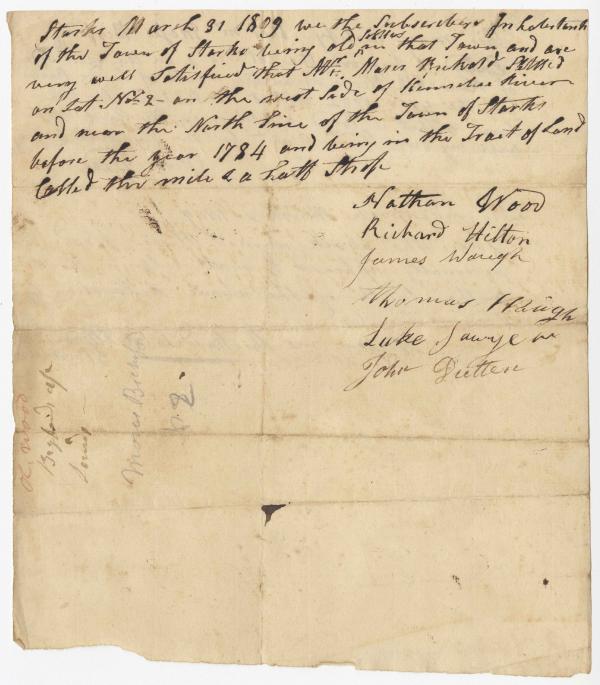 Starks March 31 1809 we the Subscribers Inhabitants
of the Town of Starks being old Settlers in that Town and are
very well Satisfied that Mr. Moses Settled
on Lot No. 2 on the west Side of Kennebec River
and near the North line of the Town of Starks
before the year 1784 and being in the Tract of Land
Called the mile & a half Strip
Nathan Wood
Richard Hilton
James Waugh
Thomas Waugh
Luke Sawyer
John Dutten
Moses
N. 2.
Wood